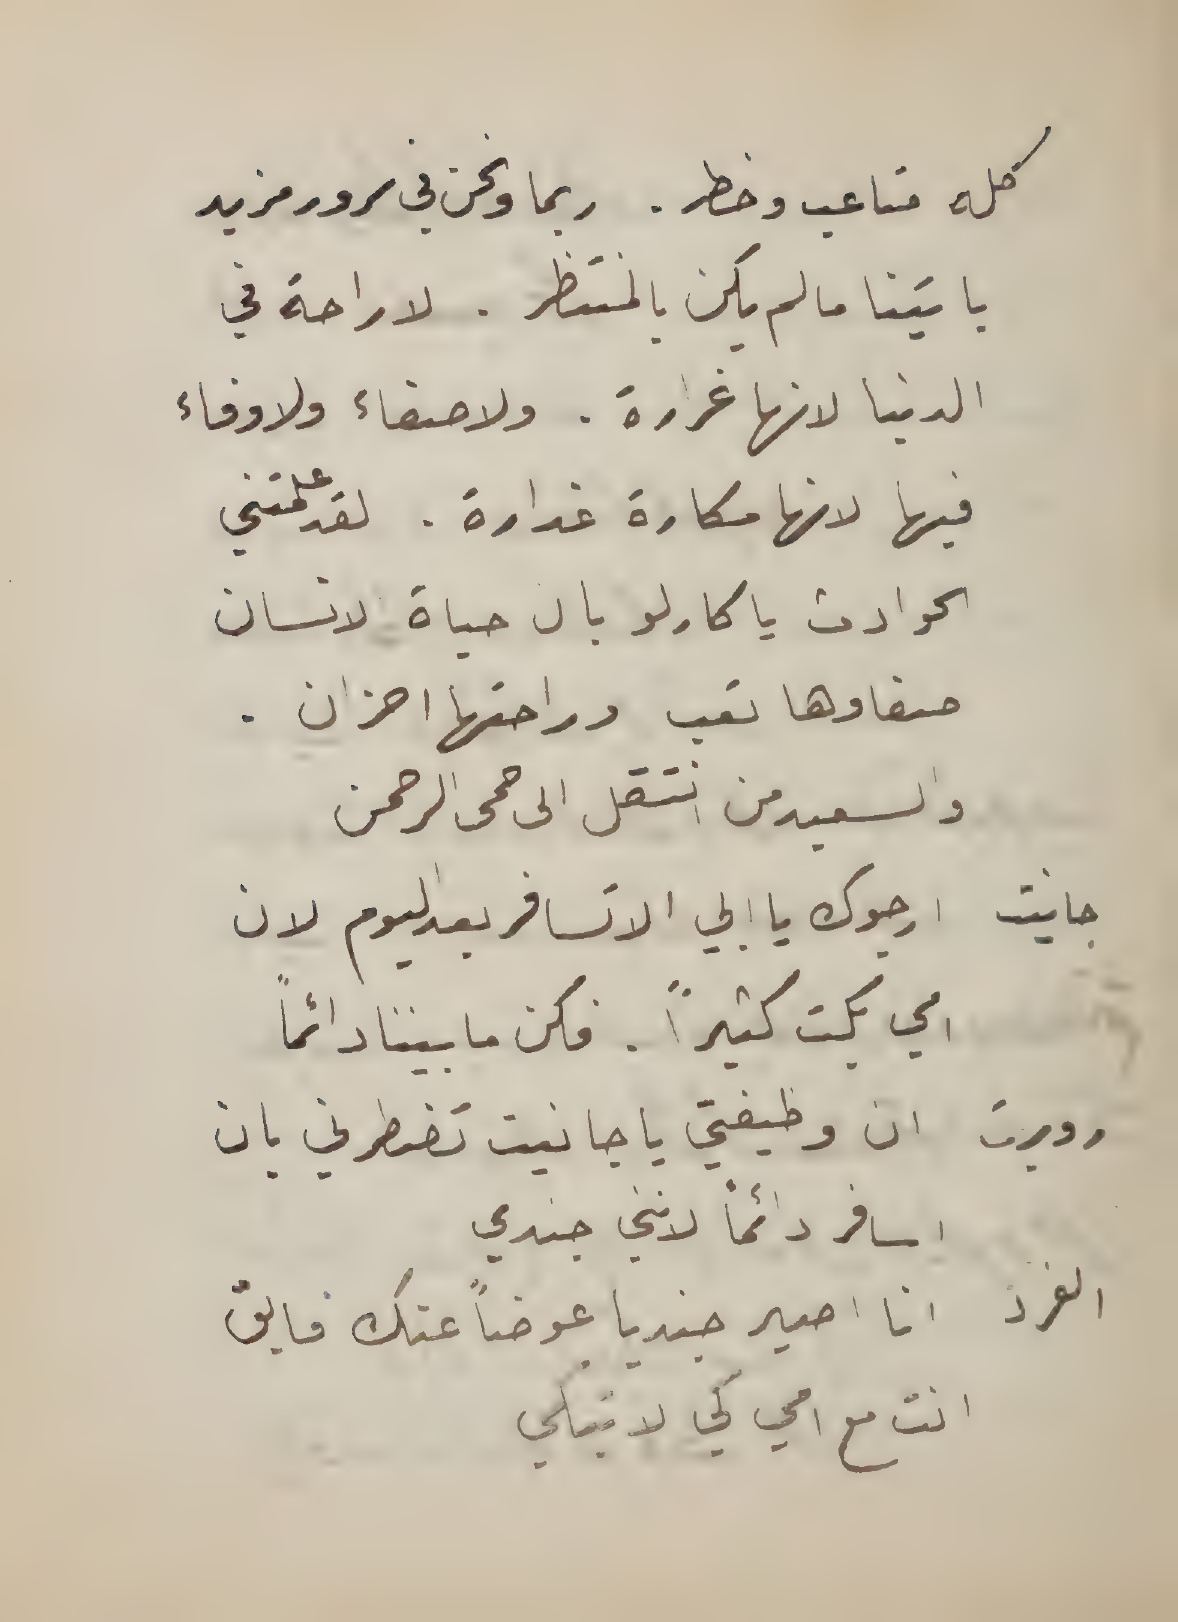 كله متاعب وخطر . ربما ونحن في سرور مزيد
ياتينا مالم يكن بالمنتظر . لا راحة في
الدنيا لانها غرارة . ولا صفاء ولا وفاء
فيها لانها مكارة غدارة . لقد علمتني
الحوادث يا كارلو بان حياة الانسان
صفاوها تعب وراحتها احزان .
والسعيد من انتقل الى حمى الرحمن
جانيت ارجوك يا ابي الا تسافر بعد اليوم لان
امي بكت كثيراً . فكن ما بيننا دائماً
روبرت ان وظيفتي يا جانيت تضطرني بان
اسافر دائماً لانني جندي
الفرد انا اصير جنديا عوضاً عنك فابق
انت مع امي كي لا تبكي